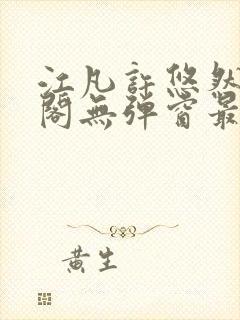 江凡許悠然
閣無彈窗最
黃生